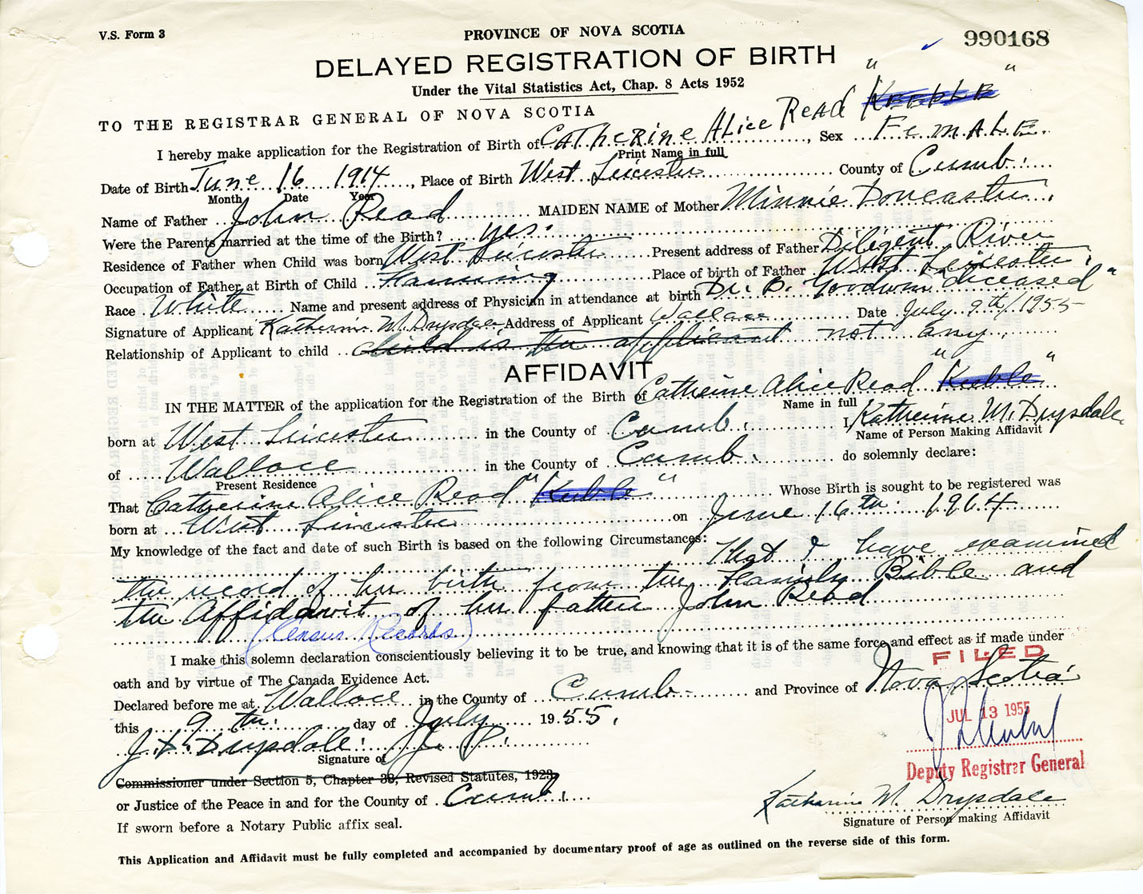 V.S. Form 3
PROVINCE OF NOVA SCOTIA
990168
DELAYED REGISTRATION OF BIRTH
Under the Vital Statistics Act, Chap. 8 Acts 1952
TO THE REGISTRAR GENERAL OF NOVA SCOTIA
I hereby make application for the Registration of Birth of CATHERINE ALICE READ " KEEBLE ", Sex FEMALE.
Print Name in full
Date of Birth June 16 1914, Place of Birth West Leicester County of Cumb.
Month Date Year
Name of Father John Read MAIDEN NAME of Mother Minnie Doncaster.
Were the Parents married at the time of the Birth? yes.
Residence of Father when Child was born West Leicester Present address of Father Diligent River
Occupation of Father at Birth of Child Farming Place of birth of Father West Leicester.
Race White Name and present address of Physician in attendance at birth Dr. B. Goodwin deceased"
Signature of Applicant Katherine M. Drysdale Address of Applicant Wallace Date July 9th/1955
Relationship of Applicant to child child is the applicant not any.
AFFIDAVIT
IN THE MATTER of the application for the Registration of the Birth of Catherine Alice Read "Keeble"
Name in full
born at West Leicester in the County of Cumb. I, Katherine M. Drysdale
Name of Person Making Affidavit
of Wallace in the County of Cumb. do solemnly declare:
Present Residence
That Catherine Alice Read "Keeble" Whose Birth is sought to be registered was
born at West Leicester on June 16th 1964
My knowledge of the fact and date of such Birth is based on the following Circumstances: That I have examined
the record of her birth from the Family Bible and
the Affidavit of her father John Read
(Census Records)
I make this solemn declaration conscientiously believing it to be true, and knowing that it is of the same force and effect as if made under
oath and by virtue of The Canada Evidence Act.
FILED
Declared before me at Wallace in the County of Cumb. and Province of Nova Scotia
this 9th. day of July 1955.
JUL 13 1955
J. D. Drysdale. J. P.
Signature of
Deputy Registrar General
Commissioner under Section 5, Chapter 38, Revised Statutes, 1923,
or Justice of the Peace in and for the County of Cumb.
Katharine M. Drysdale
Signature of Person making Affidavit
If sworn before a Notary Public affix seal.
This Application and Affidavit must be fully completed and accompanied by documentary proof of age as outlined on the reverse side of this form.